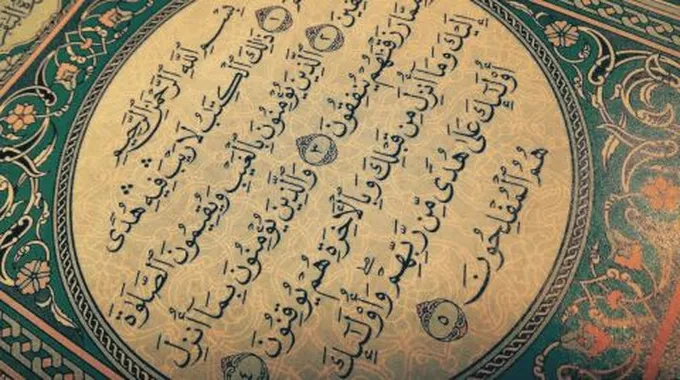 بِسْمِ ٱللَّهِ ٱلرَّحْمَٰنِ ٱلرَّحِيمِ
١ ذَٰلِكَ ٱلْكِتَٰبُ لَا رَيْبَ ۛ فِيهِ ۛ هُدًى
٢ ٱلَّذِينَ يُؤْمِنُونَ بِٱلْغَيْبِ وَيُقِيمُونَ ٱلصَّلَوٰةَ
رَزَقْنَٰهُمْ يُنفِقُونَ ٣ وَٱلَّذِينَ يُؤْمِنُونَ بِمَآ أُنزِلَ
إِلَيْكَ وَمَآ أُنزِلَ مِن قَبْلِكَ وَبِٱلْءَاخِرَةِ هُمْ يُوقِنُونَ ٤
أُو۟لَٰٓئِكَ عَلَىٰ هُدًى مِّن رَّبِّهِمْ ۖ وَأُو۟لَٰٓئِكَ
هُمُ ٱلْمُفْلِحُونَ ٥